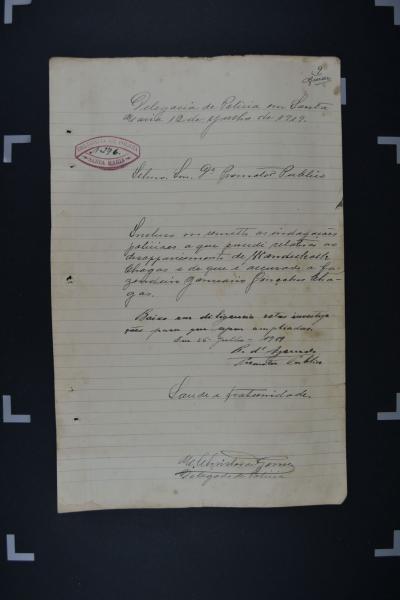 9
Delegacia de Policia em Santa
Maria 12 de Julho de 1919.
DELEGACIA DE POLICIA
N. 396.
SANTA MARIA
Illmo. Snr. Dr. Promotor Publico
Incluso vos remetto as indagações
policiaes a que procedi relativas ao
desapparecimento de
Chagas e de que é accusado o fa-
zendeiro Gonçalves Cha-
gas.
Baixo em diligencia estas investiga-
ções para que sejam ampliadas.
Em 26 - Julho - 1919
Promotor Publico
Saude e fraternidade.
Delegado de Policia